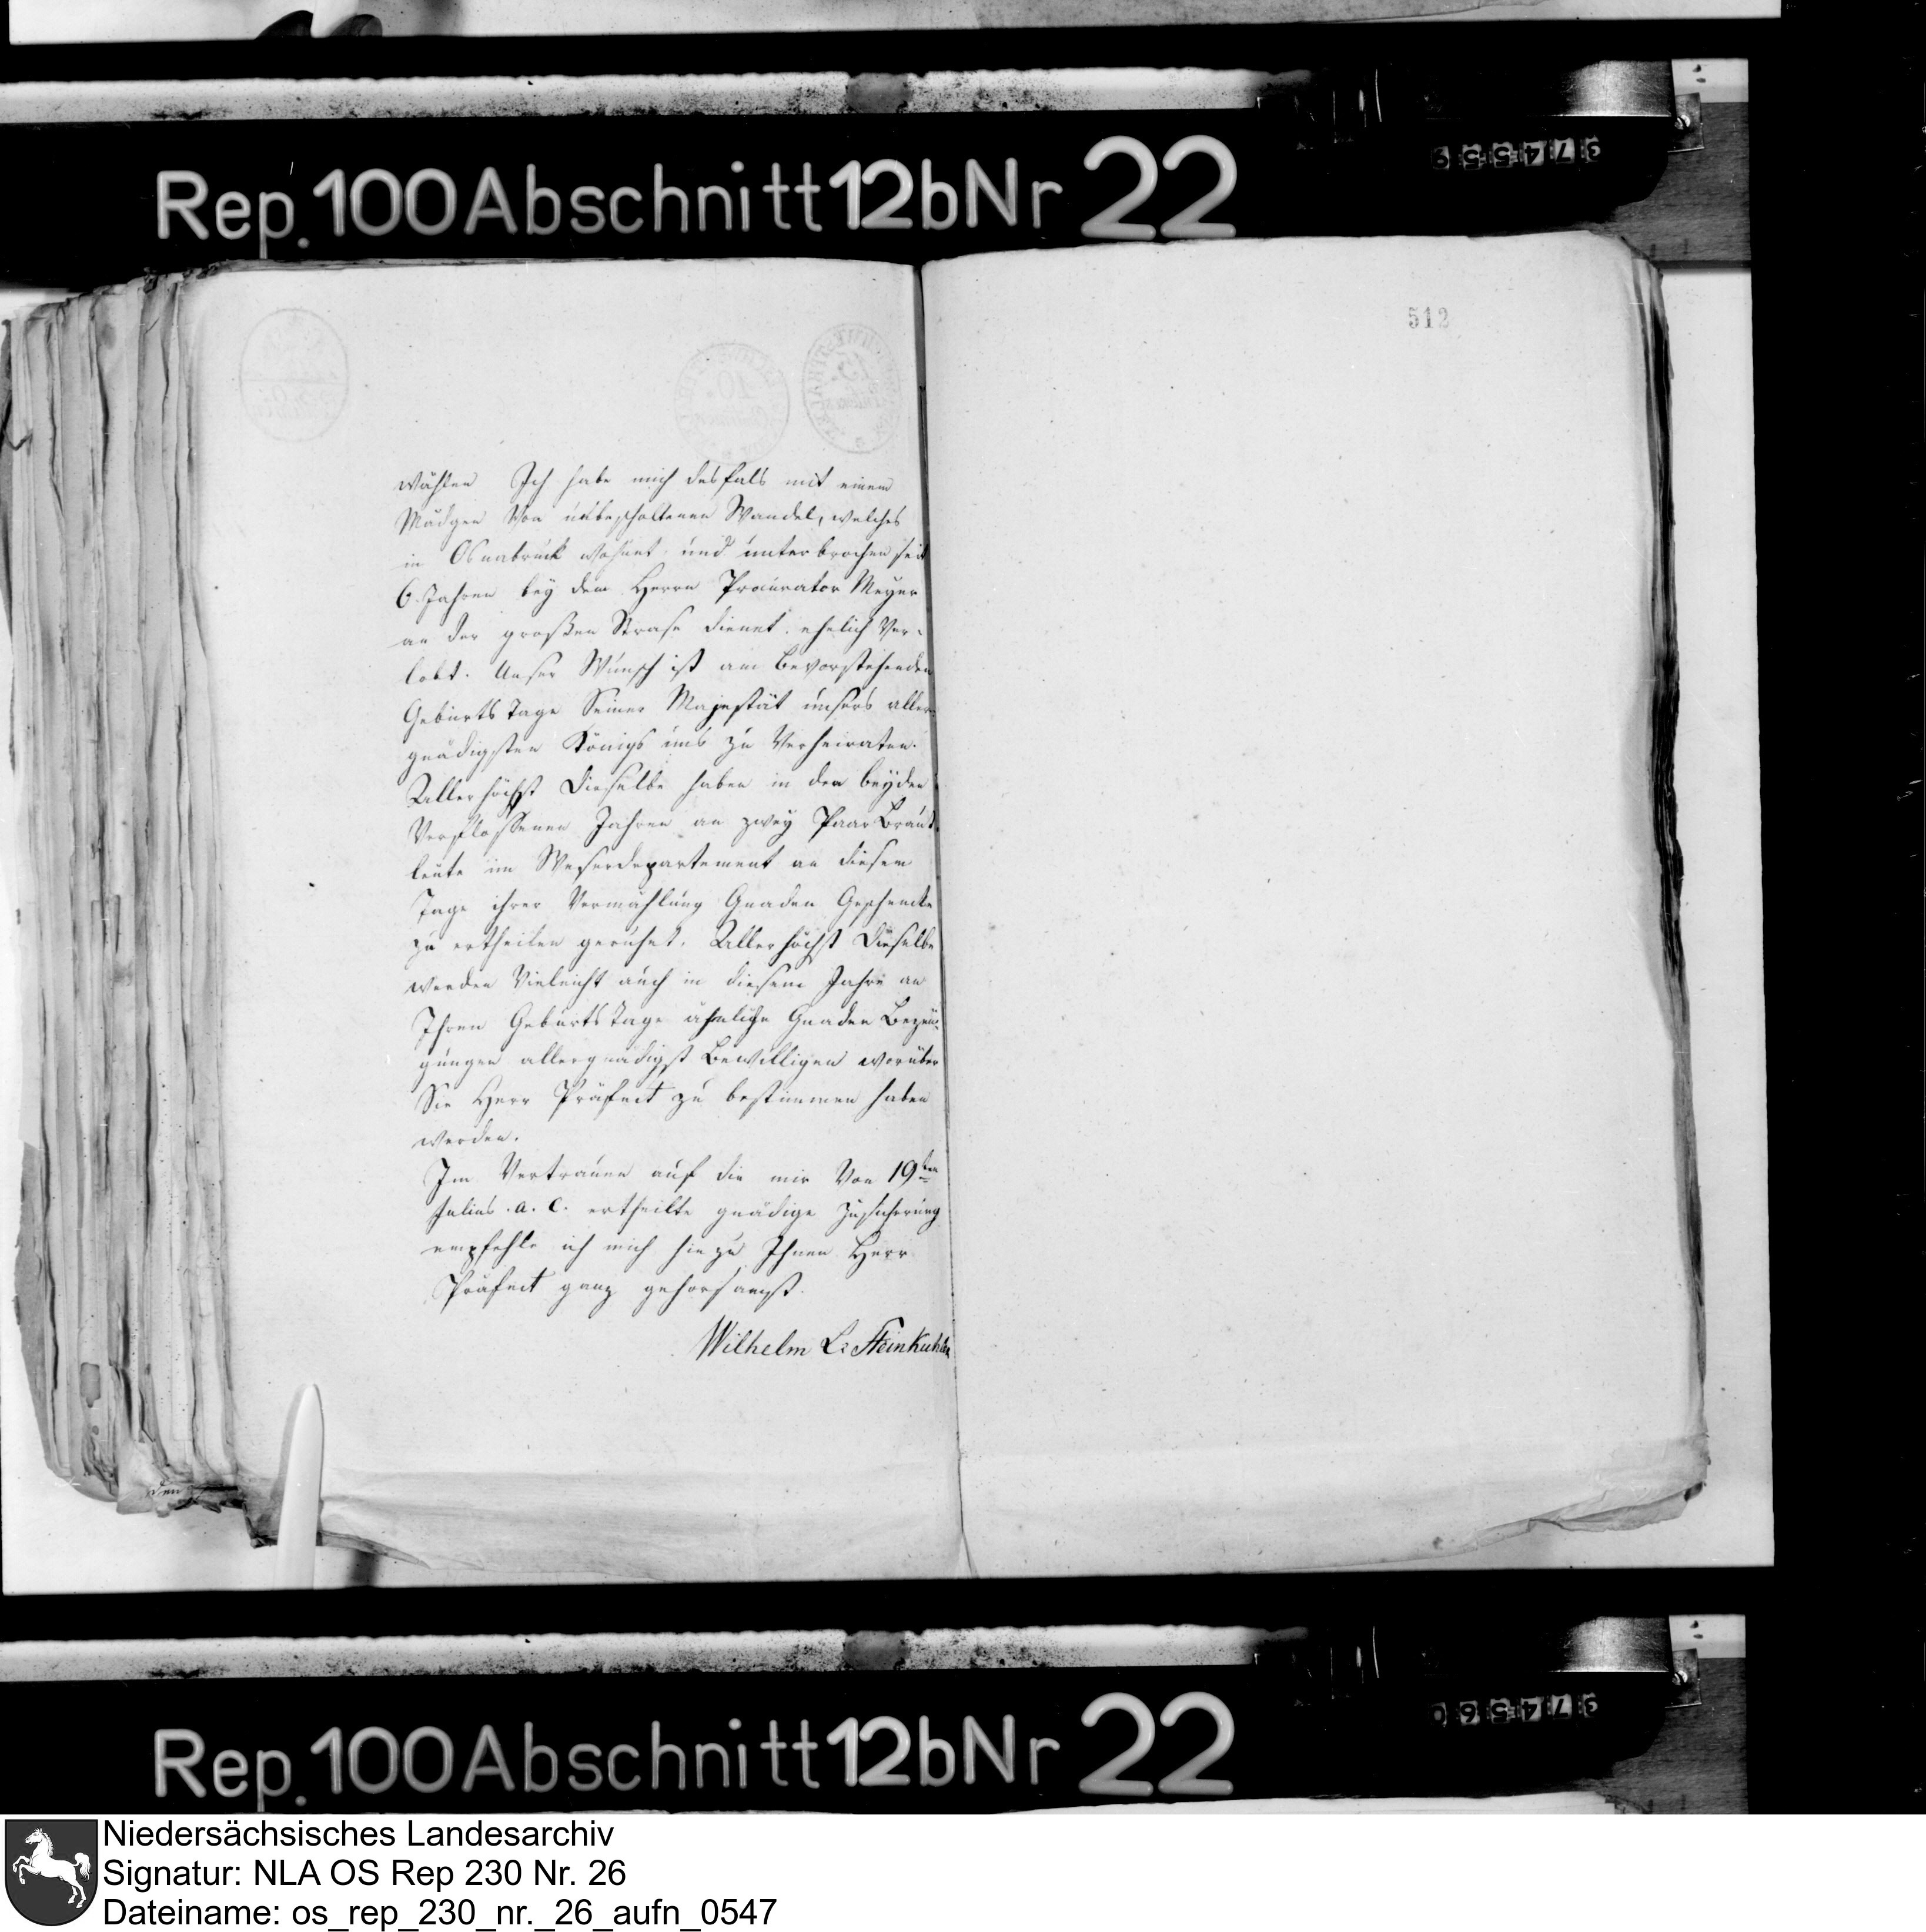 Rep. 100 Abschnitt 12b Nr 22
974559
512
wählen Ich habe mich desfals mit einem
Mädgen Von unbescholtenen Wandel, welches
in Osnabruck wohnet, und unterbrochen seit
6 Jahren bey dem Herrn Procurator Meyer
an der großen Strase dienet, ehelich Ver-
lobt. Unser Wunsch ist am bevorstehenden
Geburts Tage Seiner Majestät unsers aller-
gnädigsten Königs uns zu Verheiraten.
Allerhöchst Dieselbe haben in den beyden
Verflossenen Jahren an zwey Paar Braut-
leute im Weserdepartement an diesem
Tage ihrer Vermählung Gnaden Geschencke
zu ertheilen geruhet. Allerhöchst Dieselbe
werden Vieleicht auch in diesem Jahre an
Ihren Geburts Tage ähnliche Gnaden Bezeu-
gungen allergnädigst Bewilligen worüber
Sie Herr Präfect zu bestimmen haben
werden.
Im Vertrauen auf die mir Von 19ten
Julius a. c. ertheilte gnädige Zusicherung
empfehle ich mich hiezu Ihnen Herr
Präfect ganz gehorsamst.
Wilhelm L: Steinkuhler
Rep. 100 Abschnitt 12b Nr 22
974560
Niedersächsisches Landesarchiv
Signatur: NLA OS Rep 230 Nr. 26
Dateiname: os_rep_230_nr._26_aufn_0547